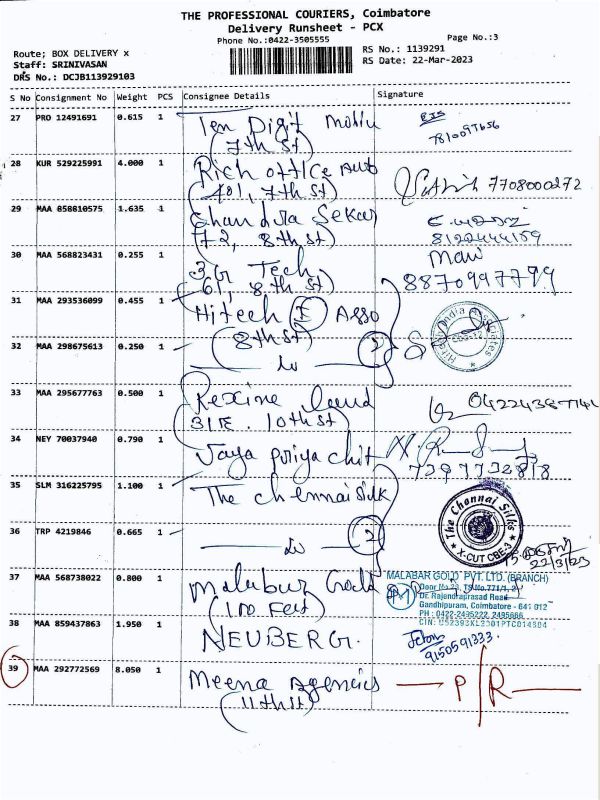 THE PROFESSIONAL COURIERS, Coimbatore
Delivery Runsheet - PCX
Phone No.:0422-3505555
Page No.:3
Route; BOX DELIVERY x
RS No.: 1139291
Staff: SRINIVASAN
RS Date: 22-Mar-2023
DRS No.: DCJB113929103
S No Consignment No Weight PCS Consignee Details Signature
27 PRO 12491691 0.615 1 Ten Digit
(7th st)
28 KUR 529225991 4.000 1 Rich office
(401, 7th st) 7708000272
29 MAA 858810575 1.635 1 Chandra Sekar
(72, 8th st) 8122444159
30 MAA 568823431 0.255 1 3G Tech
(61, 8th st) 8870997799
31 MAA 293536099 0.455 1 Hitech I Asso
(8th st)
Hitech India Associates
32 MAA 298675613 0.250 1 2
33 MAA 295677763 0.500 1 Rexine Land
31E. 10th st)
34 NEY 70037940 0.790 1 Jaya priya chit
7397732878
35 SLM 316225795 1.100 1 The chennai silk
The Chennai Silks
X-CUT CBE-3
36 TRP 4219846 0.665 1 2
22/3/23
37 MAA 568738022 0.800 1 Malabur Gold
(100 Feet)
MALABAR GOLD PVT. LTD. (BRANCH)
Dr. Rajendraprasad Road
Gandhipuram, Coimbatore - 641 012
38 MAA 859437863 1.950 1 NEUBERG.
9150591333.
39 MAA 292772569 8.050 1 Meena Agencies P/R
(11th st)